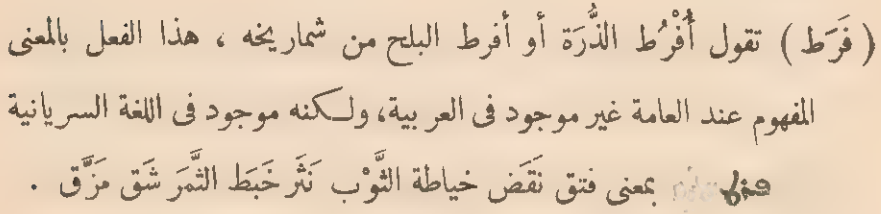 ( فَرَط ) تقول أُفْرُط الذُّرَة أو أفرط البلح من شماريخه ، هذا الفعل بالمعنى
المفهوم عند العامة غير موجود فى العربية، ولكنه موجود فى اللغة السريانية
بمعنى فتق نَقَض خياطة الثَّوْب نَثَر خَبَط الثَّمَر شَق مَزَّق .